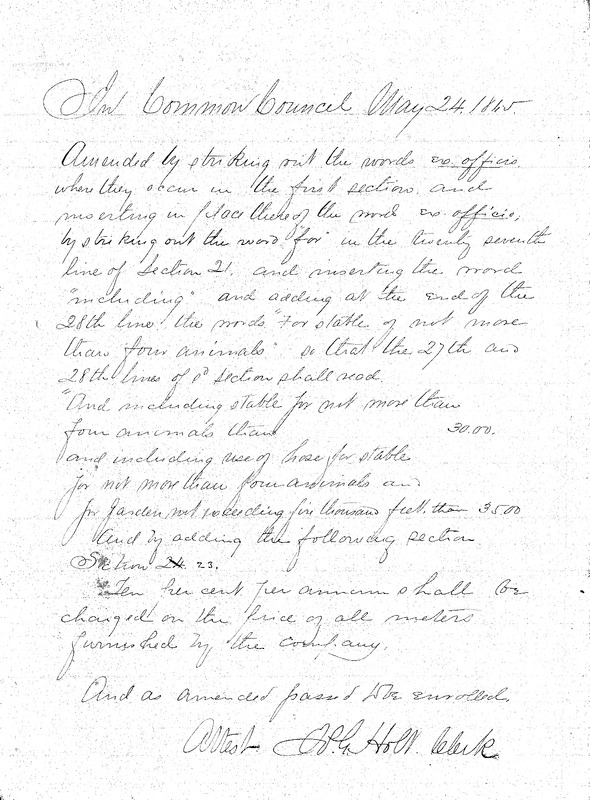 In Common Council May 24. 1845.
Amended by striking out the words ex. officis
where they occur in the first section and
inserting in place thereof the word ex. officio,
by striking out the word "for" in the twenty seventh
line of Section 21. and inserting the word
"including" and adding at the end of the
28th line the words "For stable of not more
than four animals" so that the 27th and
28th lines of sd section shall read.
"And including stable for not more than
four animals than 30.00.
and including use of hose for stable
for not more than four animals and
for garden not exceeding five thousand feet. than 35 00
And by adding the following section
Section 23.
Ten per cent per annum shall be
charged on the price of all meters
furnished by the company.
And as amended passed to be enrolled.
Attest. Holt. Clerk